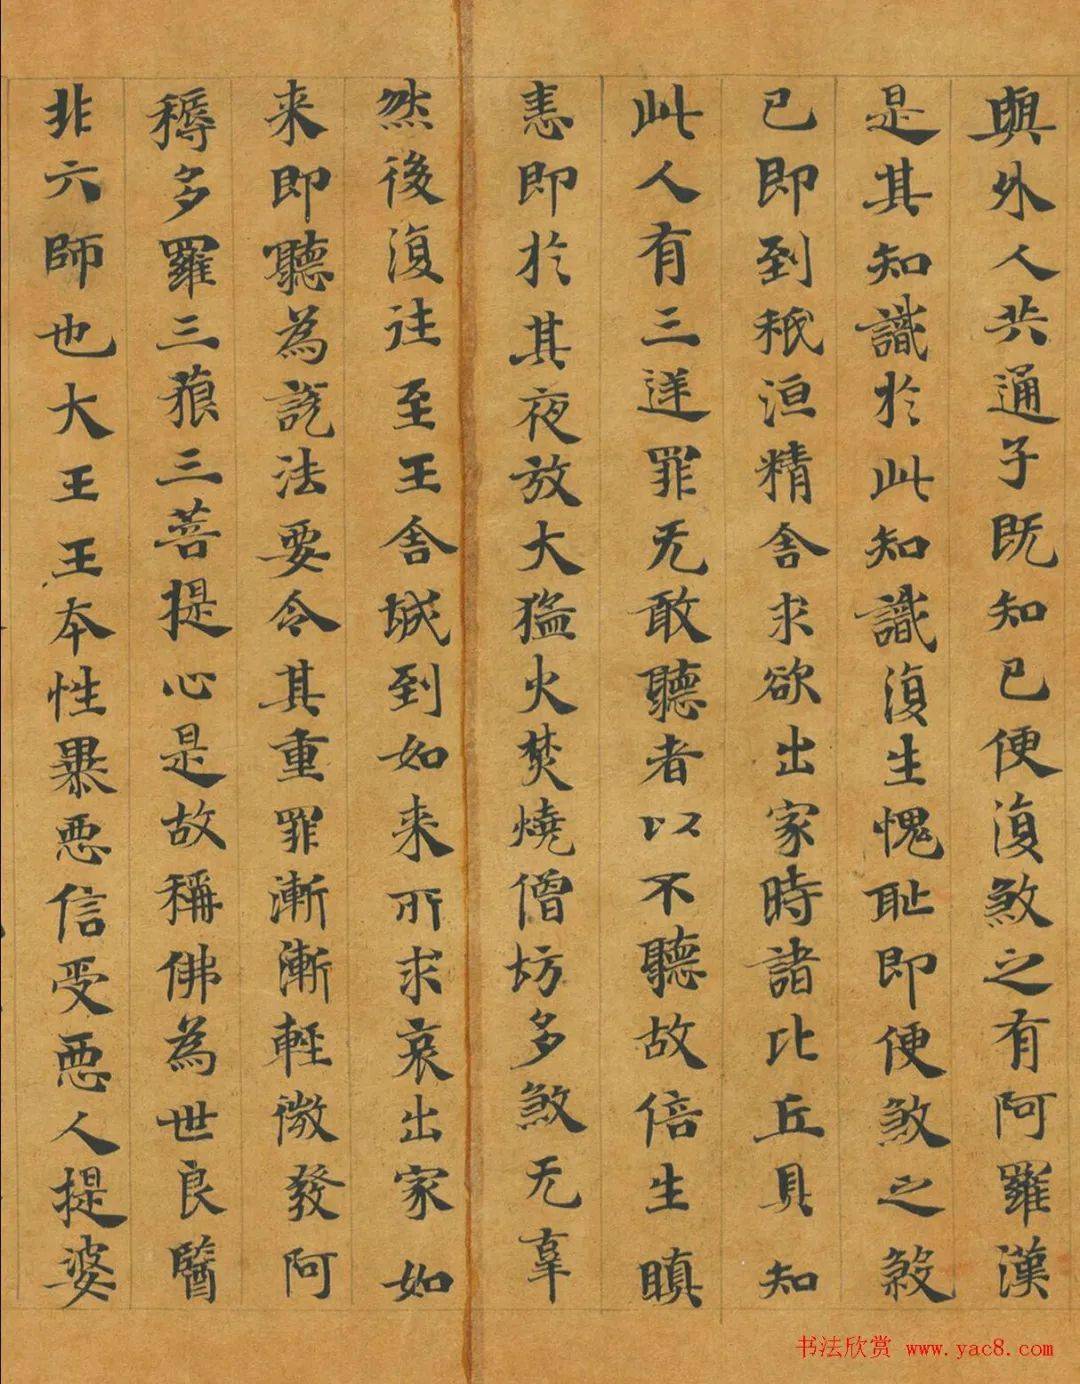 與外人共通子既知已便復煞之有阿羅漢
是其知識於此知識復生愧耻即便煞之煞
已即到秖洹精舍求欲出家時諸比丘具知
此人有三逆罪无敢聽者以不聽故倍生瞋
恚即於其夜放大猛火焚燒僧坊多煞无辜
然後復往至王舍城到如来所求哀出家如
来即聽為説法要令其重罪漸漸輕微發阿
耨多羅三藐三菩提心是故稱佛為世良醫
非六師也大王王本性暴惡信受惡人提婆
书法欣赏 www.yac8.com